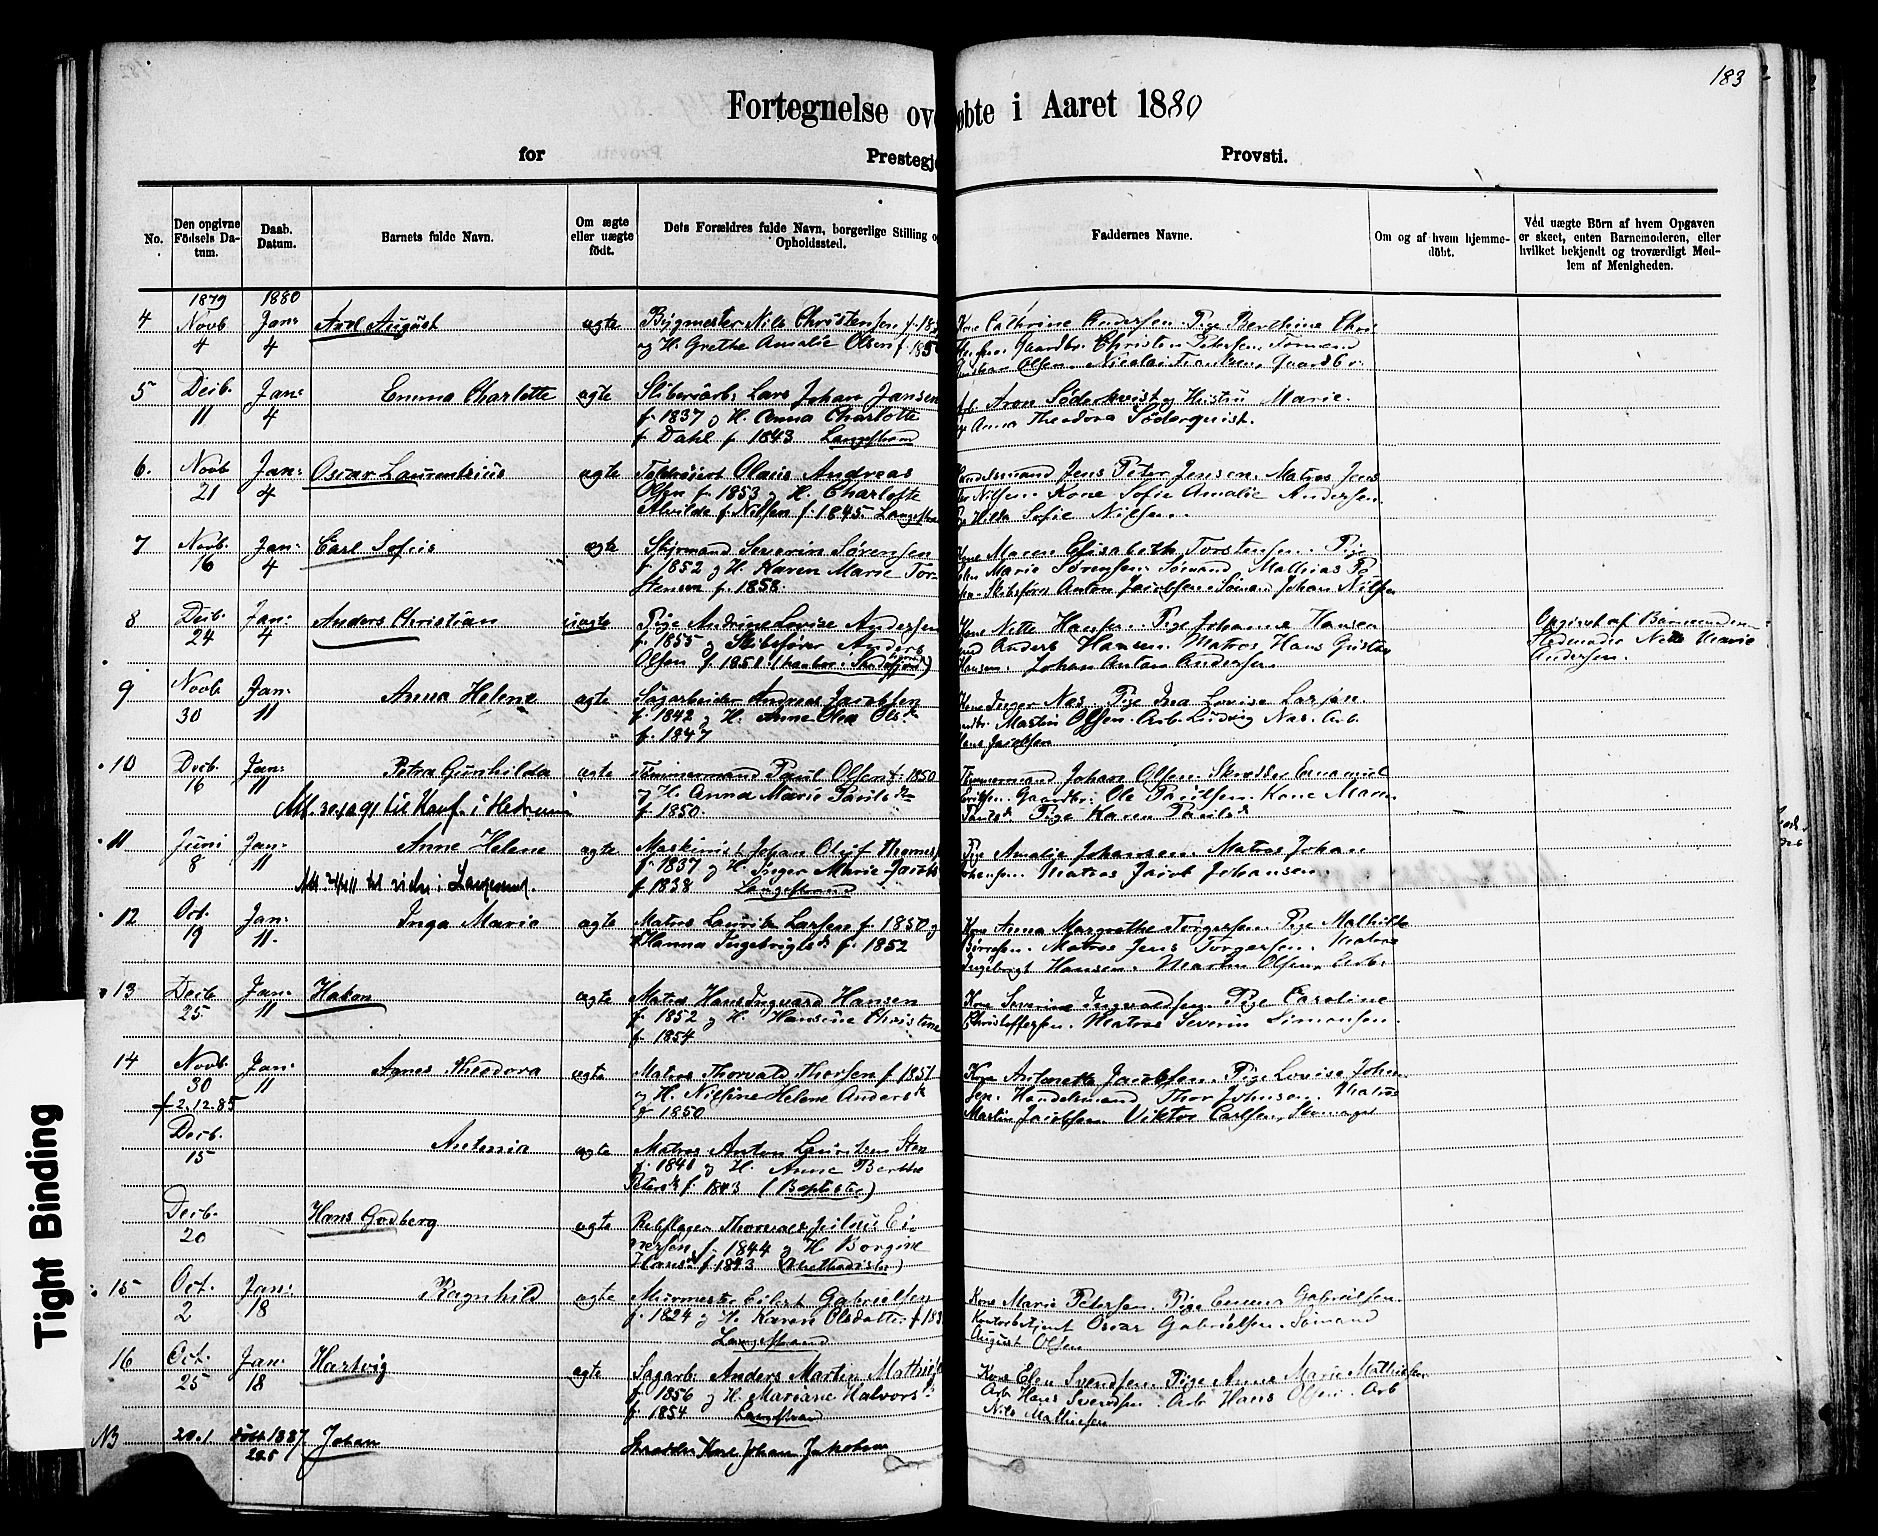 183
Fortegnelse ov øbte i Aaret 1880
for Prestegj Provsti.
No.
Den opgivne Födsels Da-tum.
Daab. Datum.
Barnets fulde Navn.
Om ægte eller uægte födt.
Dets Forældres fulde Navn, borgerlige Stilling o
Opholdssted.
Faddernes Navne.
Om og af hvem hjemme-döbt.
Ved uægte Börn af hvem Opgaven
er skeet, enten Barnemoderen, eller
hvilket bekjendt og troværdigt Med-
lem af Menigheden.
1879 1880
4 Novb 4 Jan: 4 Axel August ægte
Bygmester Nils Christensen f. 18
og H. Grethe Amalie Olsen f. 185
Kone Cathrine Andersen. Pige Berthine Chri
Gaardbr. Christen Petersen, Sømand
Olsen, Nicolai Frantzen, Gaardbr.
5 Decb. 11 Jan: 4 Emma Charlotte ægte
Sliberiarb. Lars Johan Jansen
f. 1837 og H. Anna Charlotte
f. Dahl f. 1843 Langestrand
Aron Söderkvist og Hustru Marie.
Anna Theodora Söderquist.
6. Novb 21 Jan: 4 Oscar Laurentzius ægte
Olaus Andreas
Olsen f. 1853 og H. Charlotte
Alvilde f. Nilsen f. 1845. Langestr
Jens Peter Jensen. Matros Jens
Nilsen. Kone Sofie Amalie Andersen
Hilda Sofie Nilsen.
7 Novb. 16 Jan: 4 Carl Sofus ægte
Styrmand Severin Sørensen
f. 1852 og H. Karen Marie Tor-
stensen f. 1858.
Maren Elisabeth Torstensen. Pige
Marie Sørensen. Sømand Mathias P
Anton Jacobsen. Søman Johan Nilsen
8 Decb: 24 Jan: 4 Anders Christian uægte
Pige Andrine Lovise Andersen
f. 1855 og Anders
Olsen f. 1858
Nette Hansen. Pige Johanne Hansen
Anders Hansen. Matros Hans Gustav
Hansen. Johan Anton Andersen
Opgivet af
Nette Marie
Andersen.
9 Novb 30 Jan: 11 Anna Helene ægte
Sagarbeider Andreas Jacobsen
f. 1842 og H. Anne Olea Ols
f. 1847
Inger Nas. Pige Ina Lovise Larsen.
Martin Olsen. Arb. Ludvig Nas. Arb.
Jacobsen
10 Decb. 16 Jan: 11 Petra Gunhilda ægte
Tömmermand Paul Olsen f. 1850
og H. Anna Marie Pauls
f. 1850.
Tömmermand Johan Olsen. Skrædder Emanuel
Gaardbr. Ole Paulsen. Kone Maren
Pige Karen Pauls
til Konf. i Hedrum
11 Juni 8 Jan: 11 Anne Helene ægte
Maskinist Johan Oluf Thomes
f. 1837 og H. Inger Marie Jacobs
f. 1838 Langestrand
Pige Amalie Johansen. Matros Johan
Johansen. Matros Jacob Johansen.
12 Oct. 19 Jan: 11. Inga Marie ægte
Matros Lauritz Larsen f. 1850 og
Hanna Ingebrigts f. 1852
Kone Anna Margrethe Torgersen. Pige Mathilde
Matros Jens Torgersen. Matros
Ingebrigt Hansen. Martin Olsen. Arb.
13 Decb 25 Jan: 11 Hakon ægte
Matros Hans Ingvard Hansen
f. 1852 og H. Hansine Christine
f. 1854
Kone Severine Ingvaldsen. Pige Caroline
Christoffersen. Matros Severin Simonsen.
14 Novb. 30 Jan: 11 Agnes Theodora ægte
† 2.12.85
Matros Thorvald Thorsen f. 1851
og H. Nilsine Helene Anders
f. 1850
Kone Antonette Jacobsen. Pige Lovise Johan
sen. Handelsmand Thor Johnsen. Matros
Martin Jacobsen. Viktor Carlsen,
Decb. 15 Antonia ægte
Matros Anton Lauritzen
og H. Anne Berthe
Peters f. 1843 (Baptister)
Decb. 20 Hans Godberg ægte
Rebslager
f. 1844 og H. Borgine
Hans f. 1843 (Methodister)
15 Oct. 2 Jan: 18 Ragnhild ægte
Murmester Eilert Gabrielsen
f. 1824 og H. Karen Olsdatter f. 183
Langestrand
Kone Marie Petersen. Pige Emma Gabrielsen.
Kontorbetjent Oscar Gabrielsen. Sömand
August Olsen
16 Oct. 25 Jan: 18 Hartvig ægte
Sagarb. Anders Martin Mathies
f. 1856 og H. Mariane Halvors
f. 1854 Langestrand
Kone Elen Svendsen. Pige Anna Marie Mathiesen
Arb. Hans Svendsen. Arb Hans Olsen. Arb
Nils Mathiesen
NB 20.1 döbt 1887 Johan
Skrædder Karl Johan Jakobsen
Tight Binding